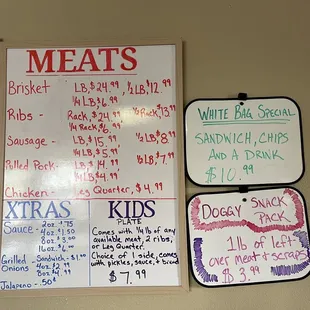 MEATS
Brisket LB, $24.99, ½LB, $12.99
¼LB $6.99
Ribs - Rack, $24.99 ½Rack, 13.99
¼Rack $6.99
Sausage - LB, $15.99 ½LB, $8.99
¼LB, 5.99
Pulled Pork LB, $14.99 ½LB, $7.99
¼LB $4.99
Chicken - Leg Quarter, $4.99
XTRAS
Sauce - 2oz .75
4oz $1.50
8oz $3.00
16oz $6.00
Grilled Onions Sandwich - $1.00
4oz $2.99
8oz $4.99
Jalapeno - .50¢
KIDS
PLATE
Comes with ¼lb of any
available meat, 2 ribs,
or Leg Quarter.
Choice of 1 side, comes
with pickles, sauce, + bread
$7.99
WHITE BAG SPECIAL
SANDWICH, CHIPS
AND A DRINK
$10.99
DOGGY SNACK
PACK
1lb of left
over meat + scraps
$3.99